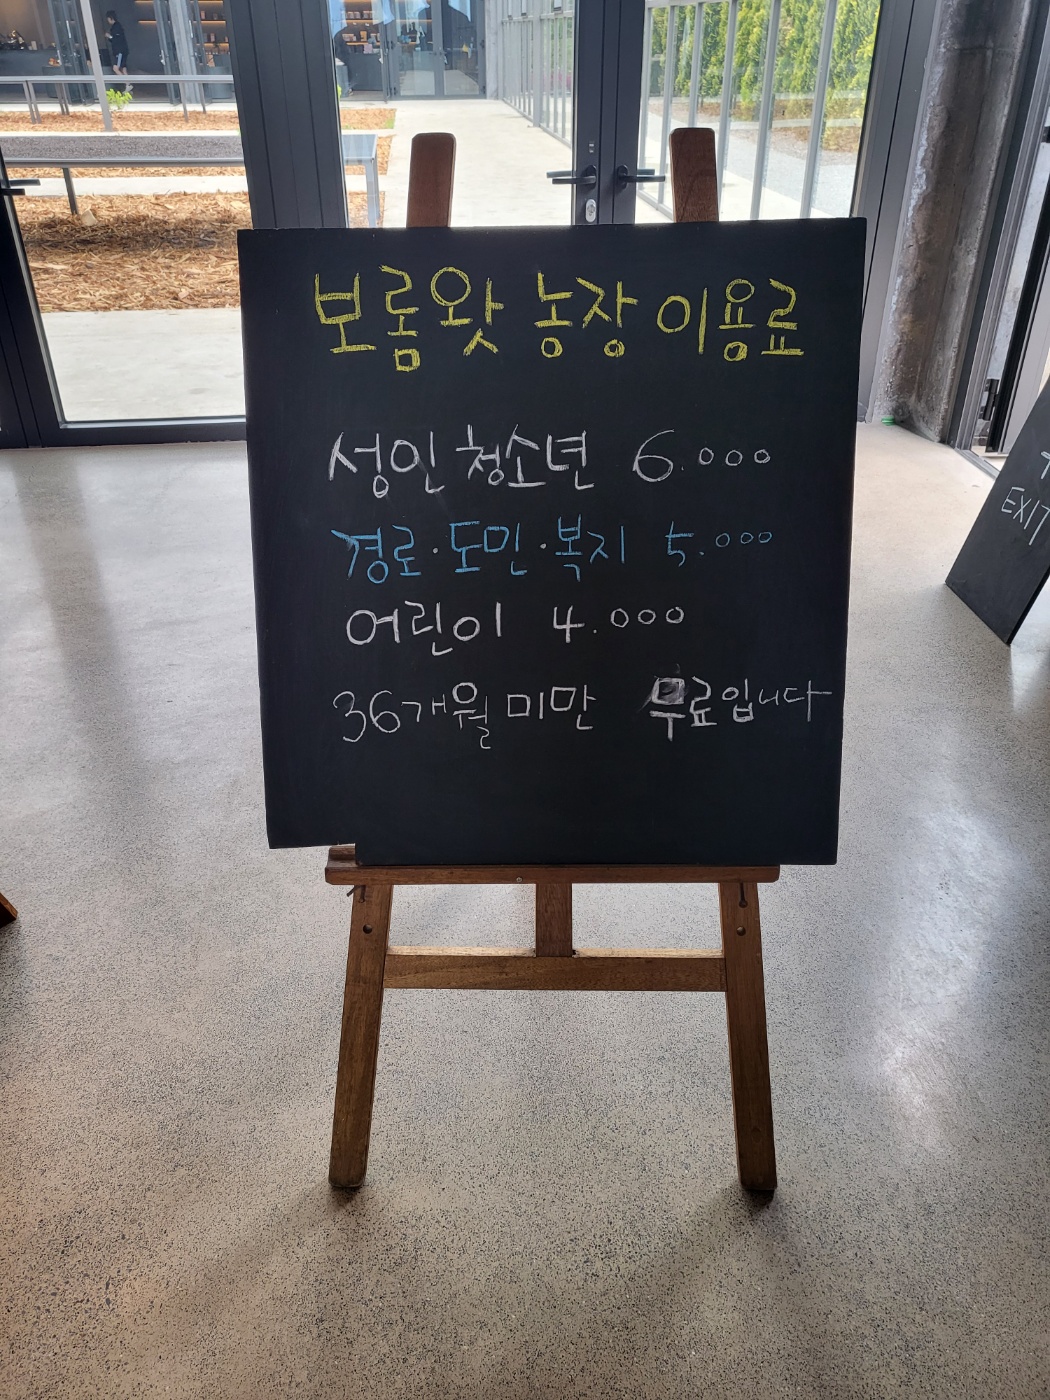 보롬왓 농장 이용료
성인 청소년 6.000
경로·도민·복지 5.000
어린이 4.000
36개월 미만 무료입니다
EXIT